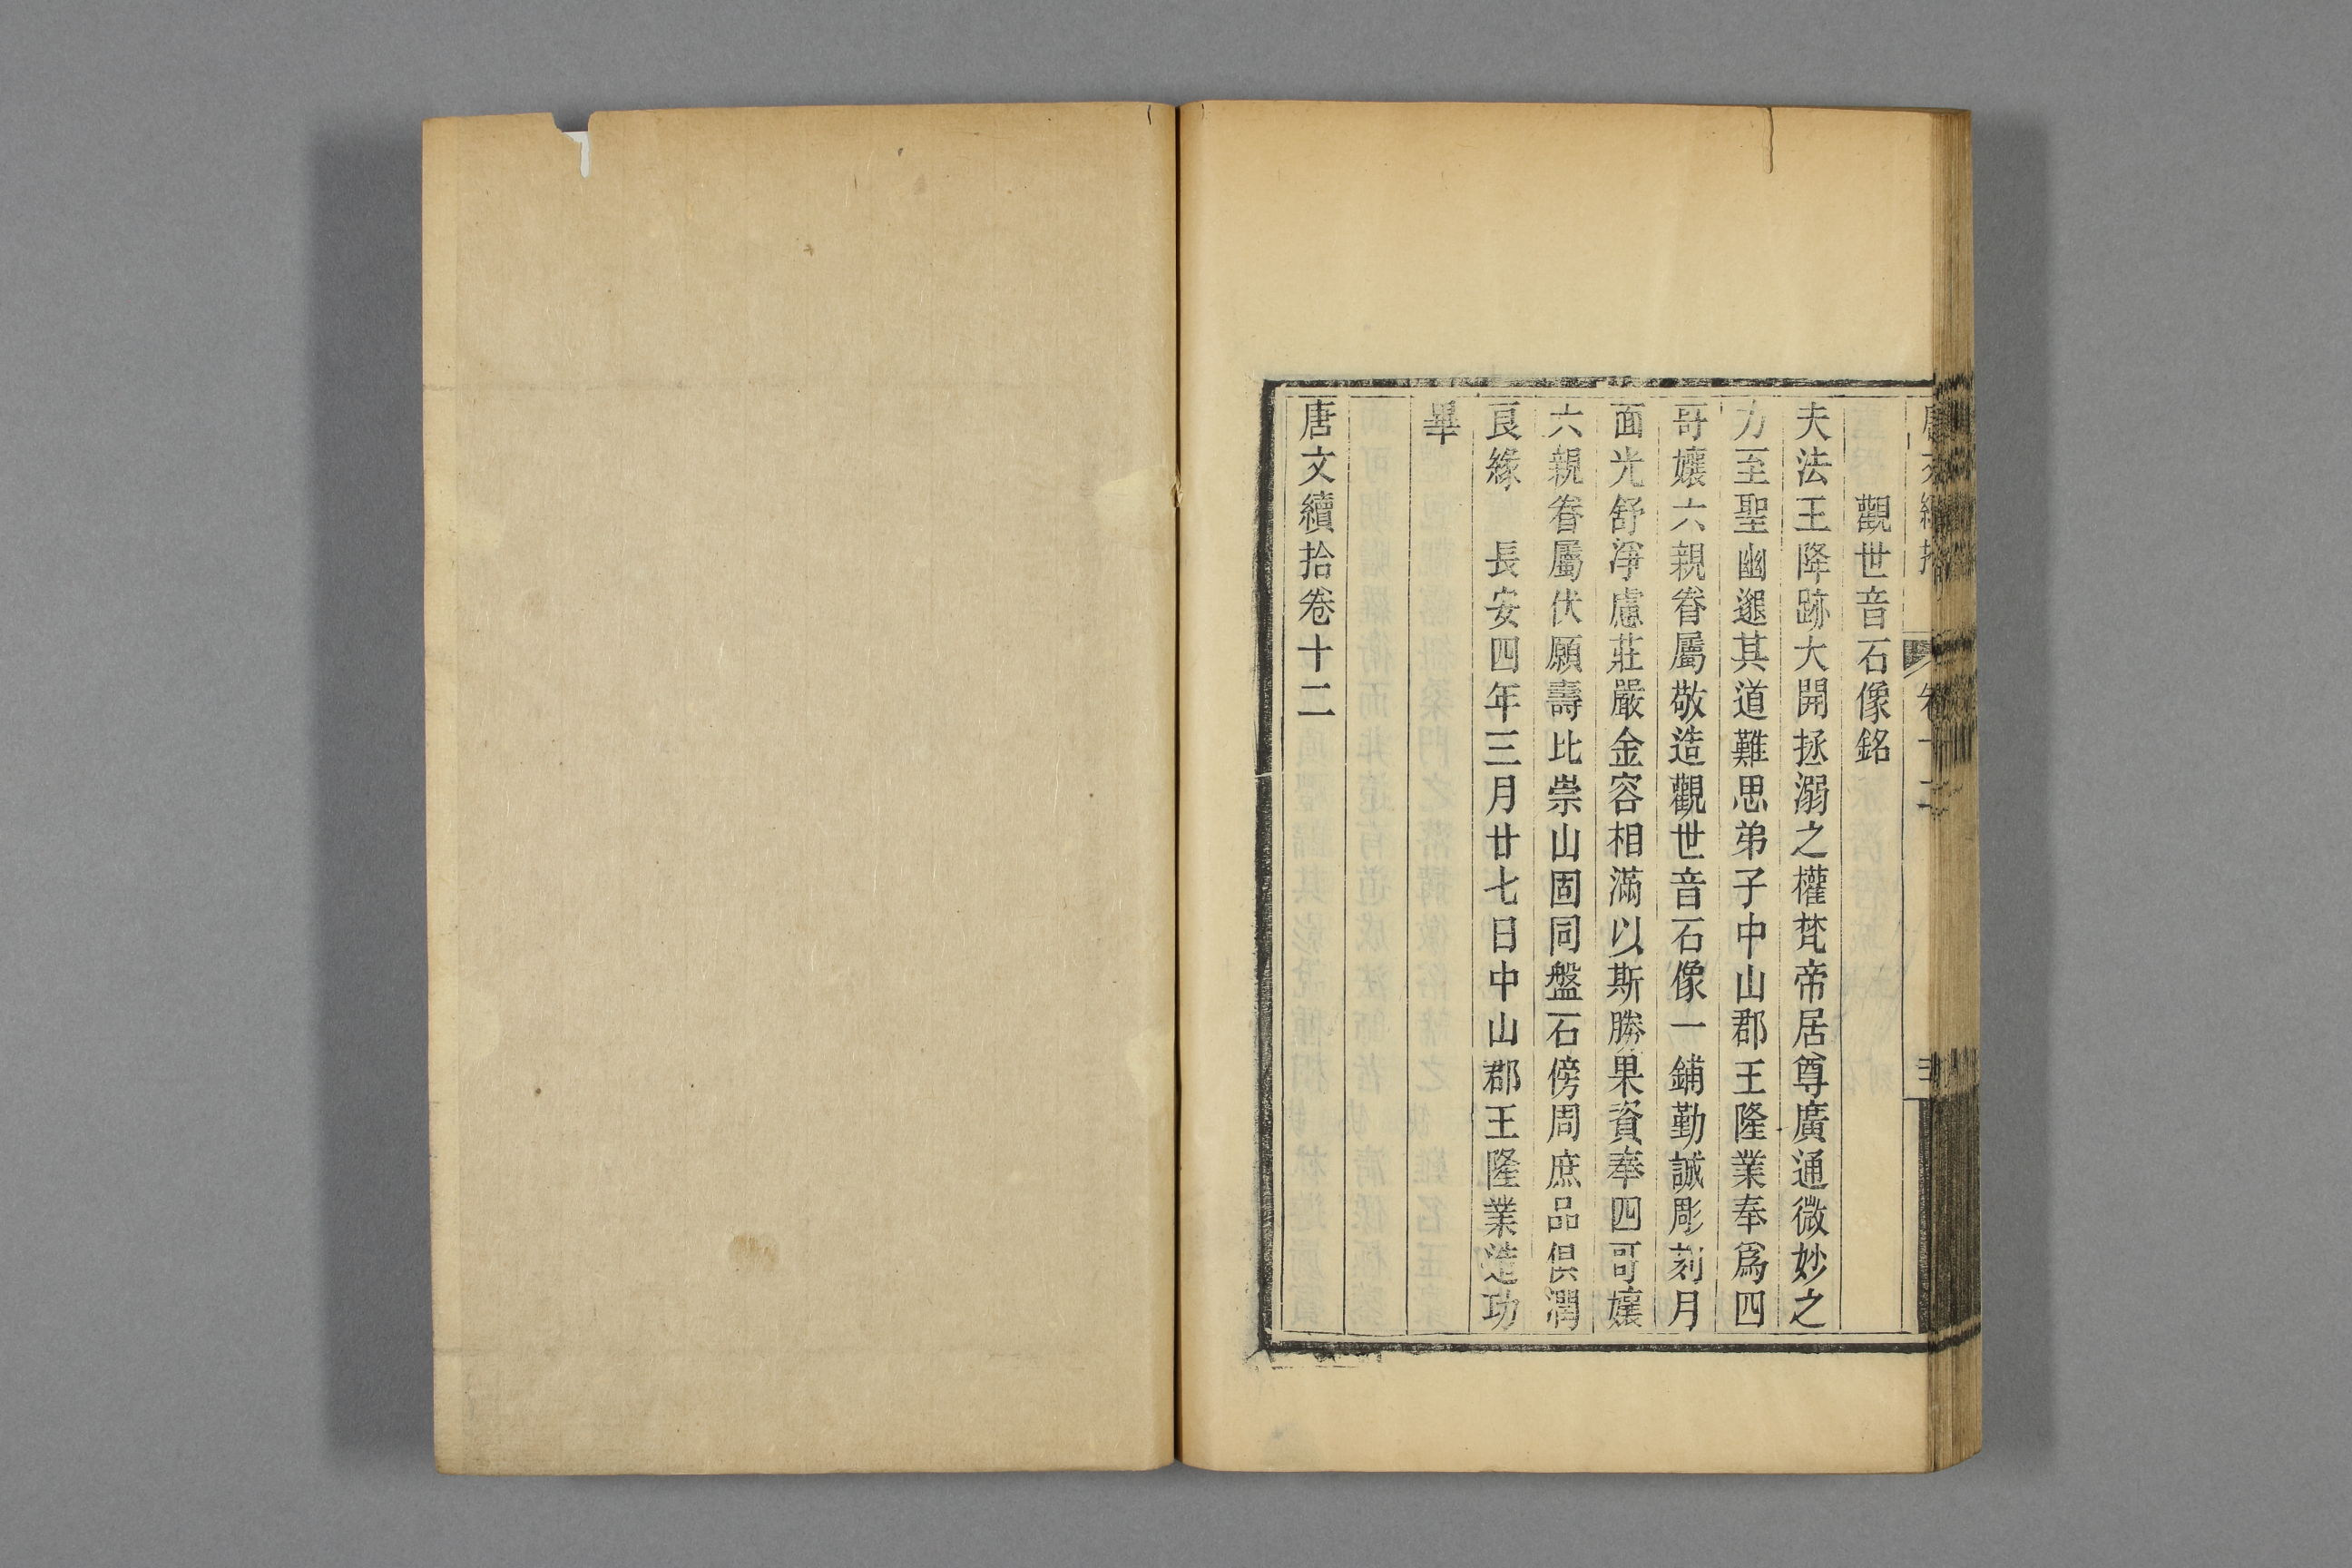 觀世音石像銘
夫法王降跡大開拯溺之權梵帝居尊廣通微妙之
力至聖幽遐其道難思弟子中山郡王隆業奉爲四
哥孃六親眷屬敬造觀世音石像一鋪勤誠彫刻月
面光舒淨慮莊嚴金容相滿以斯勝果資奉四哥孃
六親眷屬伏願壽比崇山固同盤石傍周庶品俱潤
良緣　長安四年三月廿七日中山郡王隆業造功
畢
唐文續拾卷十二